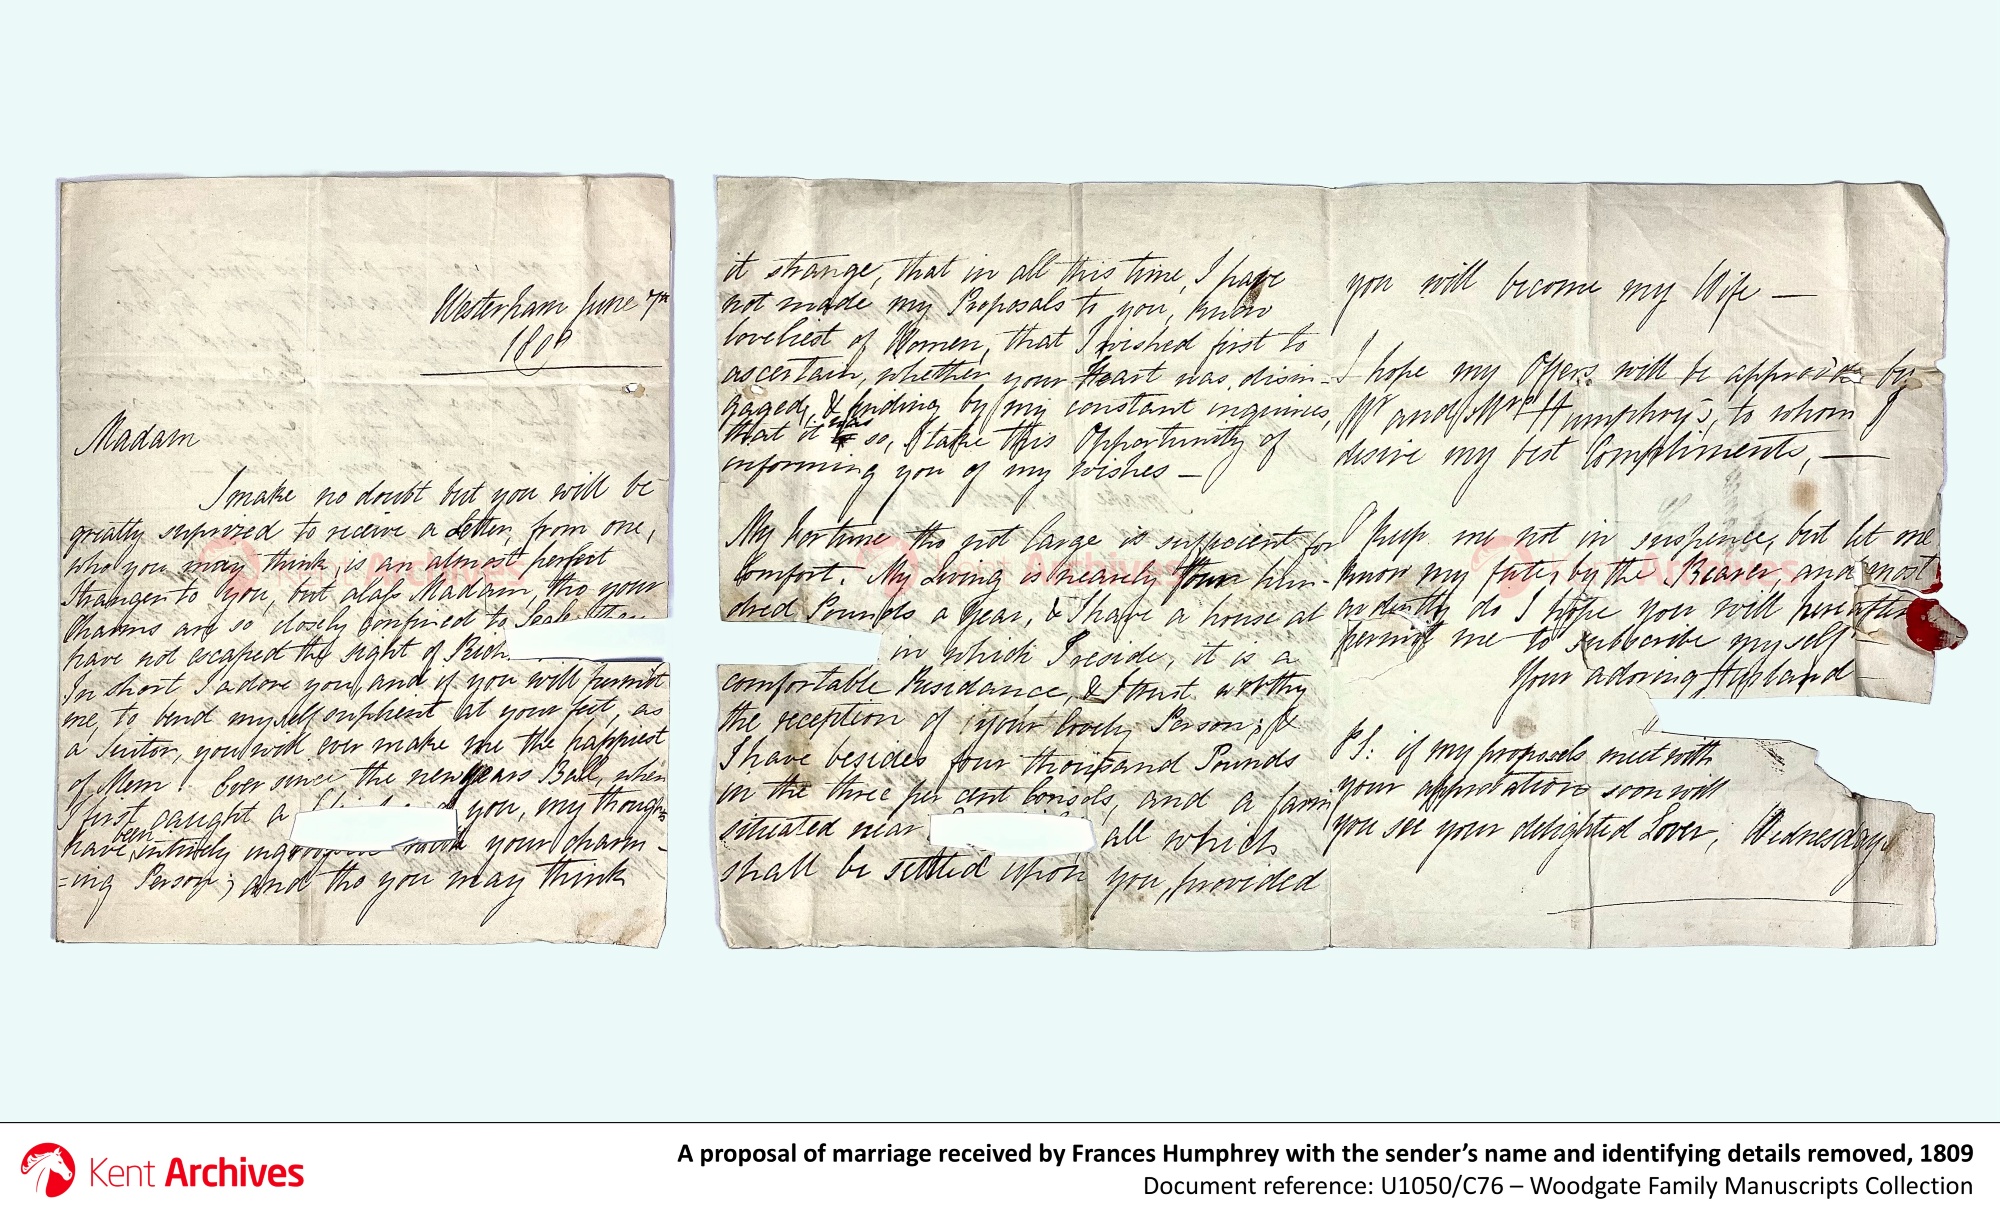 Westerham June 7th
1809
Madam
I make no doubt but you will be
greatly suprized to receive a Letter, from one,
who you may think, is an almost perfect
Stranger to You, but alas Madam, tho your
Charms are so closely confined to
have not escaped the sight of Rich
In short I adore you, and if you will permit
me, to bend myself suplient at your feet, as
a Suitor, you will ever make me the happiest
of Men. Ever since the new years Ball, when
I first caught a you, my thoughts
have been intirely with your charm-
=ing Person; and tho you may think
it strange, that in all this time, I have
not made my Proposals to you, know
loveliest of Women, that I wished first to
ascertain, whether your Heart was disin-
gaged, & finding by my constant inquiries,
that it was so, I take this Opportunity of
informing you of my wishes —
My Fortune tho not large is sufficient for
Comfort. My Living is nearly four hun-
dred Pounds a Year, & I have a house at
in which I reside, it is a
comfortable Residance, & I trust worthy
the reception of your lovely Person; &
I have besides four thousand Pounds
in the three per cent Consols, and a farm
situated near all which
shall be settled upon you, provided
you will become my Wife —
I hope my Offers will be approved by
Mr and Mrs Humphry's, to whom I
desire my best Compliments, —
keep me not in suspence, but let me
know my fate, by the Bearer and most
ardently do I hope you will hereafter
permit me to subscribe myself —
Your adoring Husband —
PS: if my proposals meet with
your approbation soon will
you see your delighted Lover, Wednesday
Kent Archives
Kent Archives
Kent Archives
Kent Archives
A proposal of marriage received by Frances Humphrey with the sender's name and identifying details removed, 1809
Document reference: U1050/C76 – Woodgate Family Manuscripts Collection